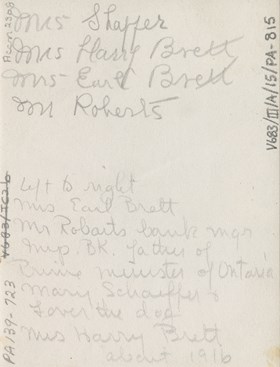 Mrs Shaffer
Mrs Harry Brett
Mrs Earl Brett
Mr Roberts
left to right
Mrs Earl Brett
Mr Robarts bank mgr.
Imp. BK. father of
Prime minister of Ontario
Mary Schaeffer &
Lover the dog
Mrs Harry Brett
about 1916
Accn. 2298
V683/IC2b
PA/39-723
V683/III/A/15/PA-815